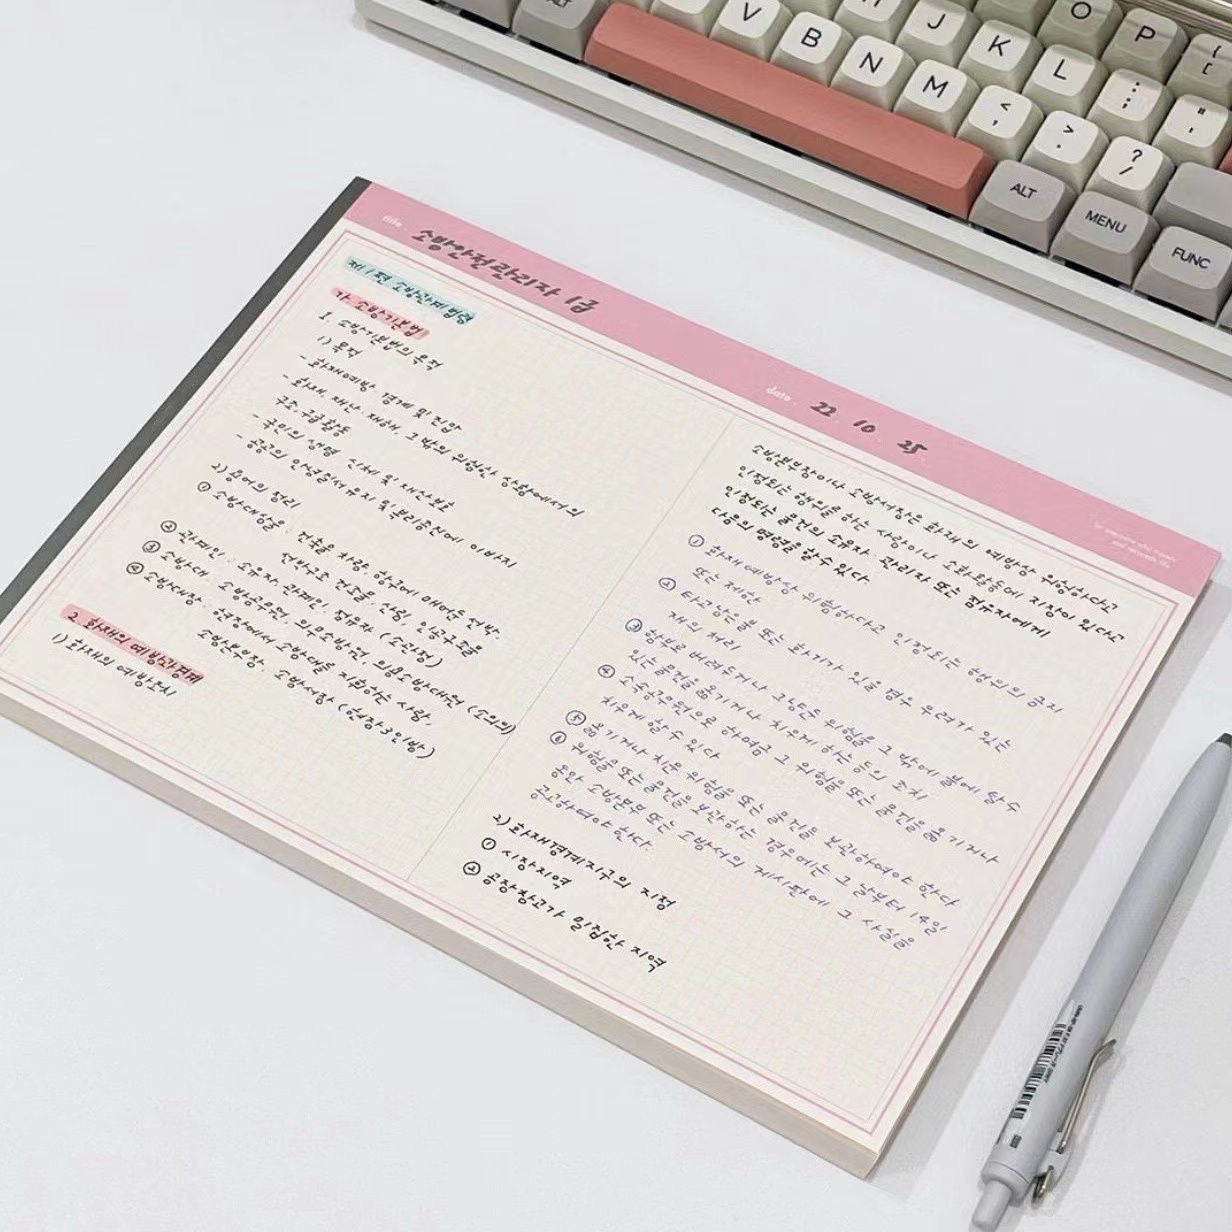 ALT
V
B
N
M
J
K
L
O
P
<
,
>
.
?
/
:
;
"
'
{
[
ALT
MENU
FUNC
title.
소방안전관리자 1급
date.
22. 10. 25
제1편 소방관계법령
가. 소방기본법
1. 소방기본법의 목적
1) 목적
- 화재예방 경계 및 진압
- 화재, 재난 재해, 그 밖의 위험한 상황에서의
구조 구급활동
- 국민의 생명 신체 및 재산보호
- 공공의 안녕질서유지 및 복리증진에 이바지
2) 용어의 정리
① 소방대상물 : 건축물 차량 항구에 매어둔 선박
선박건조 구조물, 산림, 인공구조물
② 관계인 : 소유자 관계인, 점유자 (소관점)
③ 소방대 : 소방공무원, 의무소방원 의용소방대원 (소의의)
④ 소방대장 : 현장에서 소방대를 지휘하는 사람
소방본부장 소방서장 (현장3인방)
2. 화재의 예방관경계
1) 화재의 예방조치
소방본부장이나 소방서장은 화재의 예방상 위험하다고
인정되는 행위를 하는 사람이나 소화활동에 지장이 있다고
인정되는 물건의 소유자·관리자 또는 점유자에게
다음의 명령을 할 수 있다
① 화재예방상 위험하다고 인정되는 행위의 금지
또는 제한
② 타고남은 불 또는 화기가 있을 경우 우려가 있는
재의 처리
③ 함부로 버려두거나 그냥둔 위험물 그 밖에 불에 탈 수
있는 물건을 옮기거나 치우게 하는 등의 조치
④ 소속공무원으로 하여금 그 위험물 또는 물건을 옮기거나
치우게 할 수 있다
⑤ 옮기거나 치운 위험물 또는 물건을 보관하여야 한다
⑥ 위험물 또는 물건을 보관하는 경우에는 그 날부터 14일
동안 소방본부 또는 소방서의 게시판에 그 사실을
공고하여야 한다.
2) 화재경계지구의 지정
① 시장지역
② 공장창고가 밀집한 지역